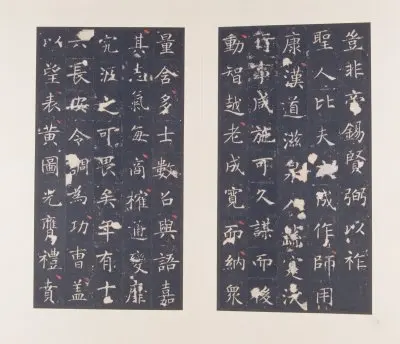 豈非帝錫賢弼以祚
聖人比夫成作師用
康漢道滋
行事成施可久謀而後
動智越老成寬而納衆
量含多士數召與語嘉
其志氣每商搉通變靡
究涯之可畏矣年有十
六長安令調為功曹盖
以望表黃圖光膺禮賁